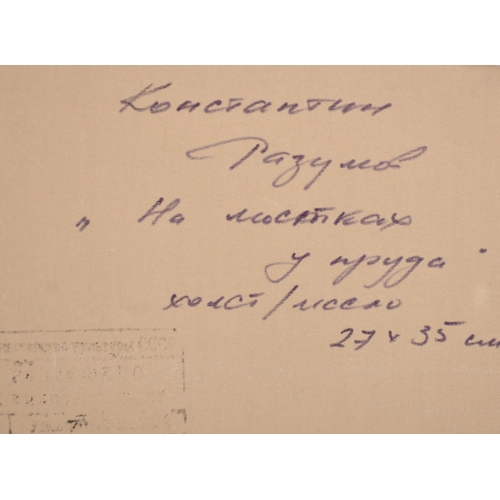 Константин
Разумов
„ На мостках
у пруда "
холст/масло
27 x 35 см